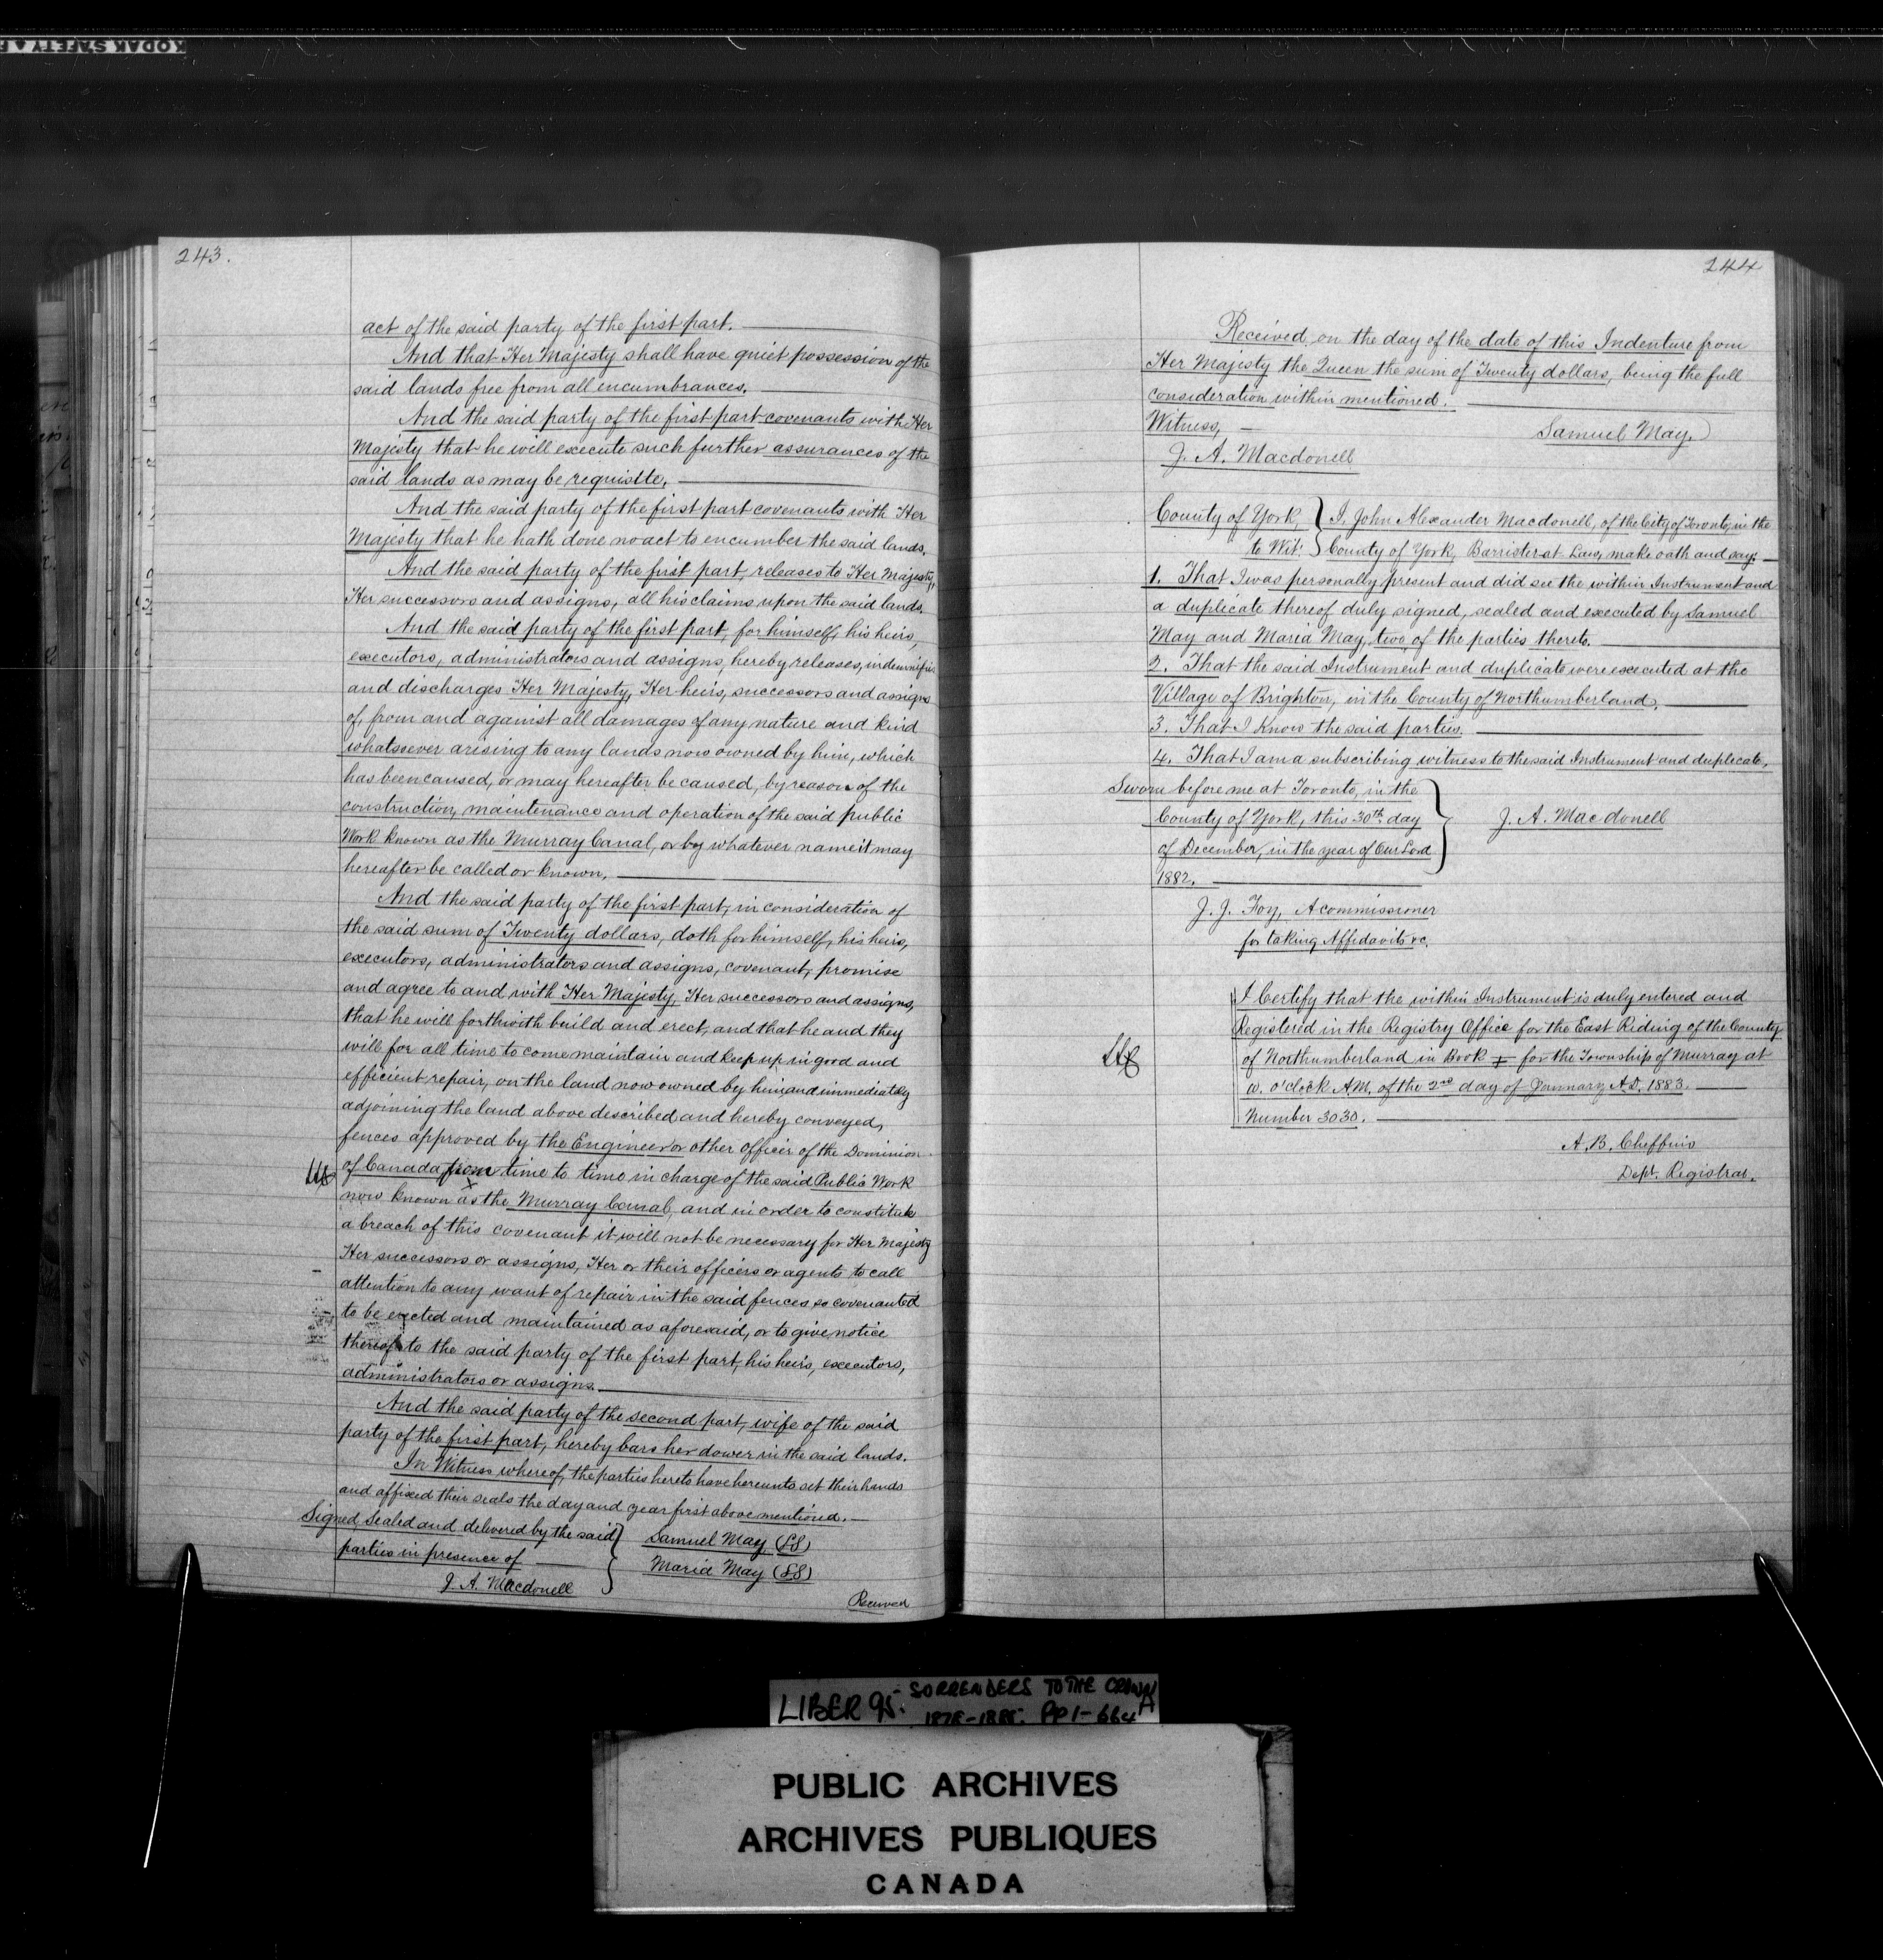 KODAK SAFETY
243.
act of the said party of the first part.
And that Her Majesty shall have quiet possession of the
said lands free from all encumbrances.
And the said party of the first part covenants with Her
Majesty that he will execute such further assurances of the
said lands as may be requisite.
And the said party of the first part covenants with Her
Majesty that he hath done no act to encumber the said lands.
And the said party of the first part, releases to Her Majesty,
Her successors and assigns, all his claims upon the said lands.
And the said party of the first part, for himself, his heirs,
executors, administrators and assigns, hereby releases, indemnifies
and discharges Her Majesty, Her heirs, successors and assigns
of, from and against all damages of any nature and kind
whatsoever arising to any lands now owned by him, which
has been caused, or may hereafter be caused, by reason of the
construction, maintenance and operation of the said public
Work known as the Murray Canal, or by whatever name it may
hereafter be called or known.
And the said party of the first part, in consideration of
the said sum of Twenty dollars, doth for himself, his heirs,
executors, administrators and assigns, covenant, promise
and agree to and with Her Majesty, Her successors and assigns,
that he will forthwith build and erect, and that he and they
will for all time to come maintain and keep up in good and
efficient repair, on the land now owned by him and immediately
adjoining the land above described and hereby conveyed,
fences approved by the Engineer or other officer of the Dominion
of Canada from time to time in charge of the said Public Work
now known as the Murray Canal, and in order to constitute
a breach of this covenant it will not be necessary for Her Majesty
Her successors or assigns, Her or their officers or agents to call
attention to any want of repair in the said fences so covenanted
to be erected and maintained as aforesaid, or to give notice
thereof to the said party of the first part, his heirs, executors,
administrators or assigns.
And the said party of the second part, wife of the said
party of the first part, hereby bars her dower in the said lands.
In Witness whereof, the parties hereto have hereunto set their hands
and affixed their seals the day and year first above mentioned.
Signed Sealed and delivered by the said } Samuel May (LS)
parties in presence of } Maria May (LS)
J. A. Macdonell
Received
244
Received, on the day of the date of this Indenture from
Her Majesty the Queen the sum of Twenty dollars, being the full
consideration within mentioned.
Witness, Samuel May.
J. A. Macdonell
County of York, } I, John Alexander Macdonell, of the City of Toronto, in the
to Wit: } County of York, Barrister at Law, make oath and say:
1. That I was personally present and did see the within Instrument and
a duplicate thereof duly signed, sealed and executed by Samuel
May and Maria May, two of the parties thereto.
2. That the said Instrument and duplicate were executed at the
Village of Brighton, in the County of Northumberland.
3. That I know the said parties.
4. That I am a subscribing witness to the said Instrument and duplicate.
Sworn before me at Toronto, in the
County of York, this 30th day } J. A. Macdonell
of December, in the year of Our Lord
1882.
J. J. Foy, A commissioner
for taking Affidavits &c.
I Certify that the within Instrument is duly entered and
Registered in the Registry Office for the East Riding of the County
of Northumberland in Book for the Township of Murray at
o'clock A.M. of the 2nd day of January A.D. 1883.
Number 3030.
A. B. Cheffins
Dept. Registrar.
LIBER 95. SORRENDERS TO THE CROWN
1878-1885. PP 1-664 A
PUBLIC ARCHIVES
ARCHIVES PUBLIQUES
CANADA